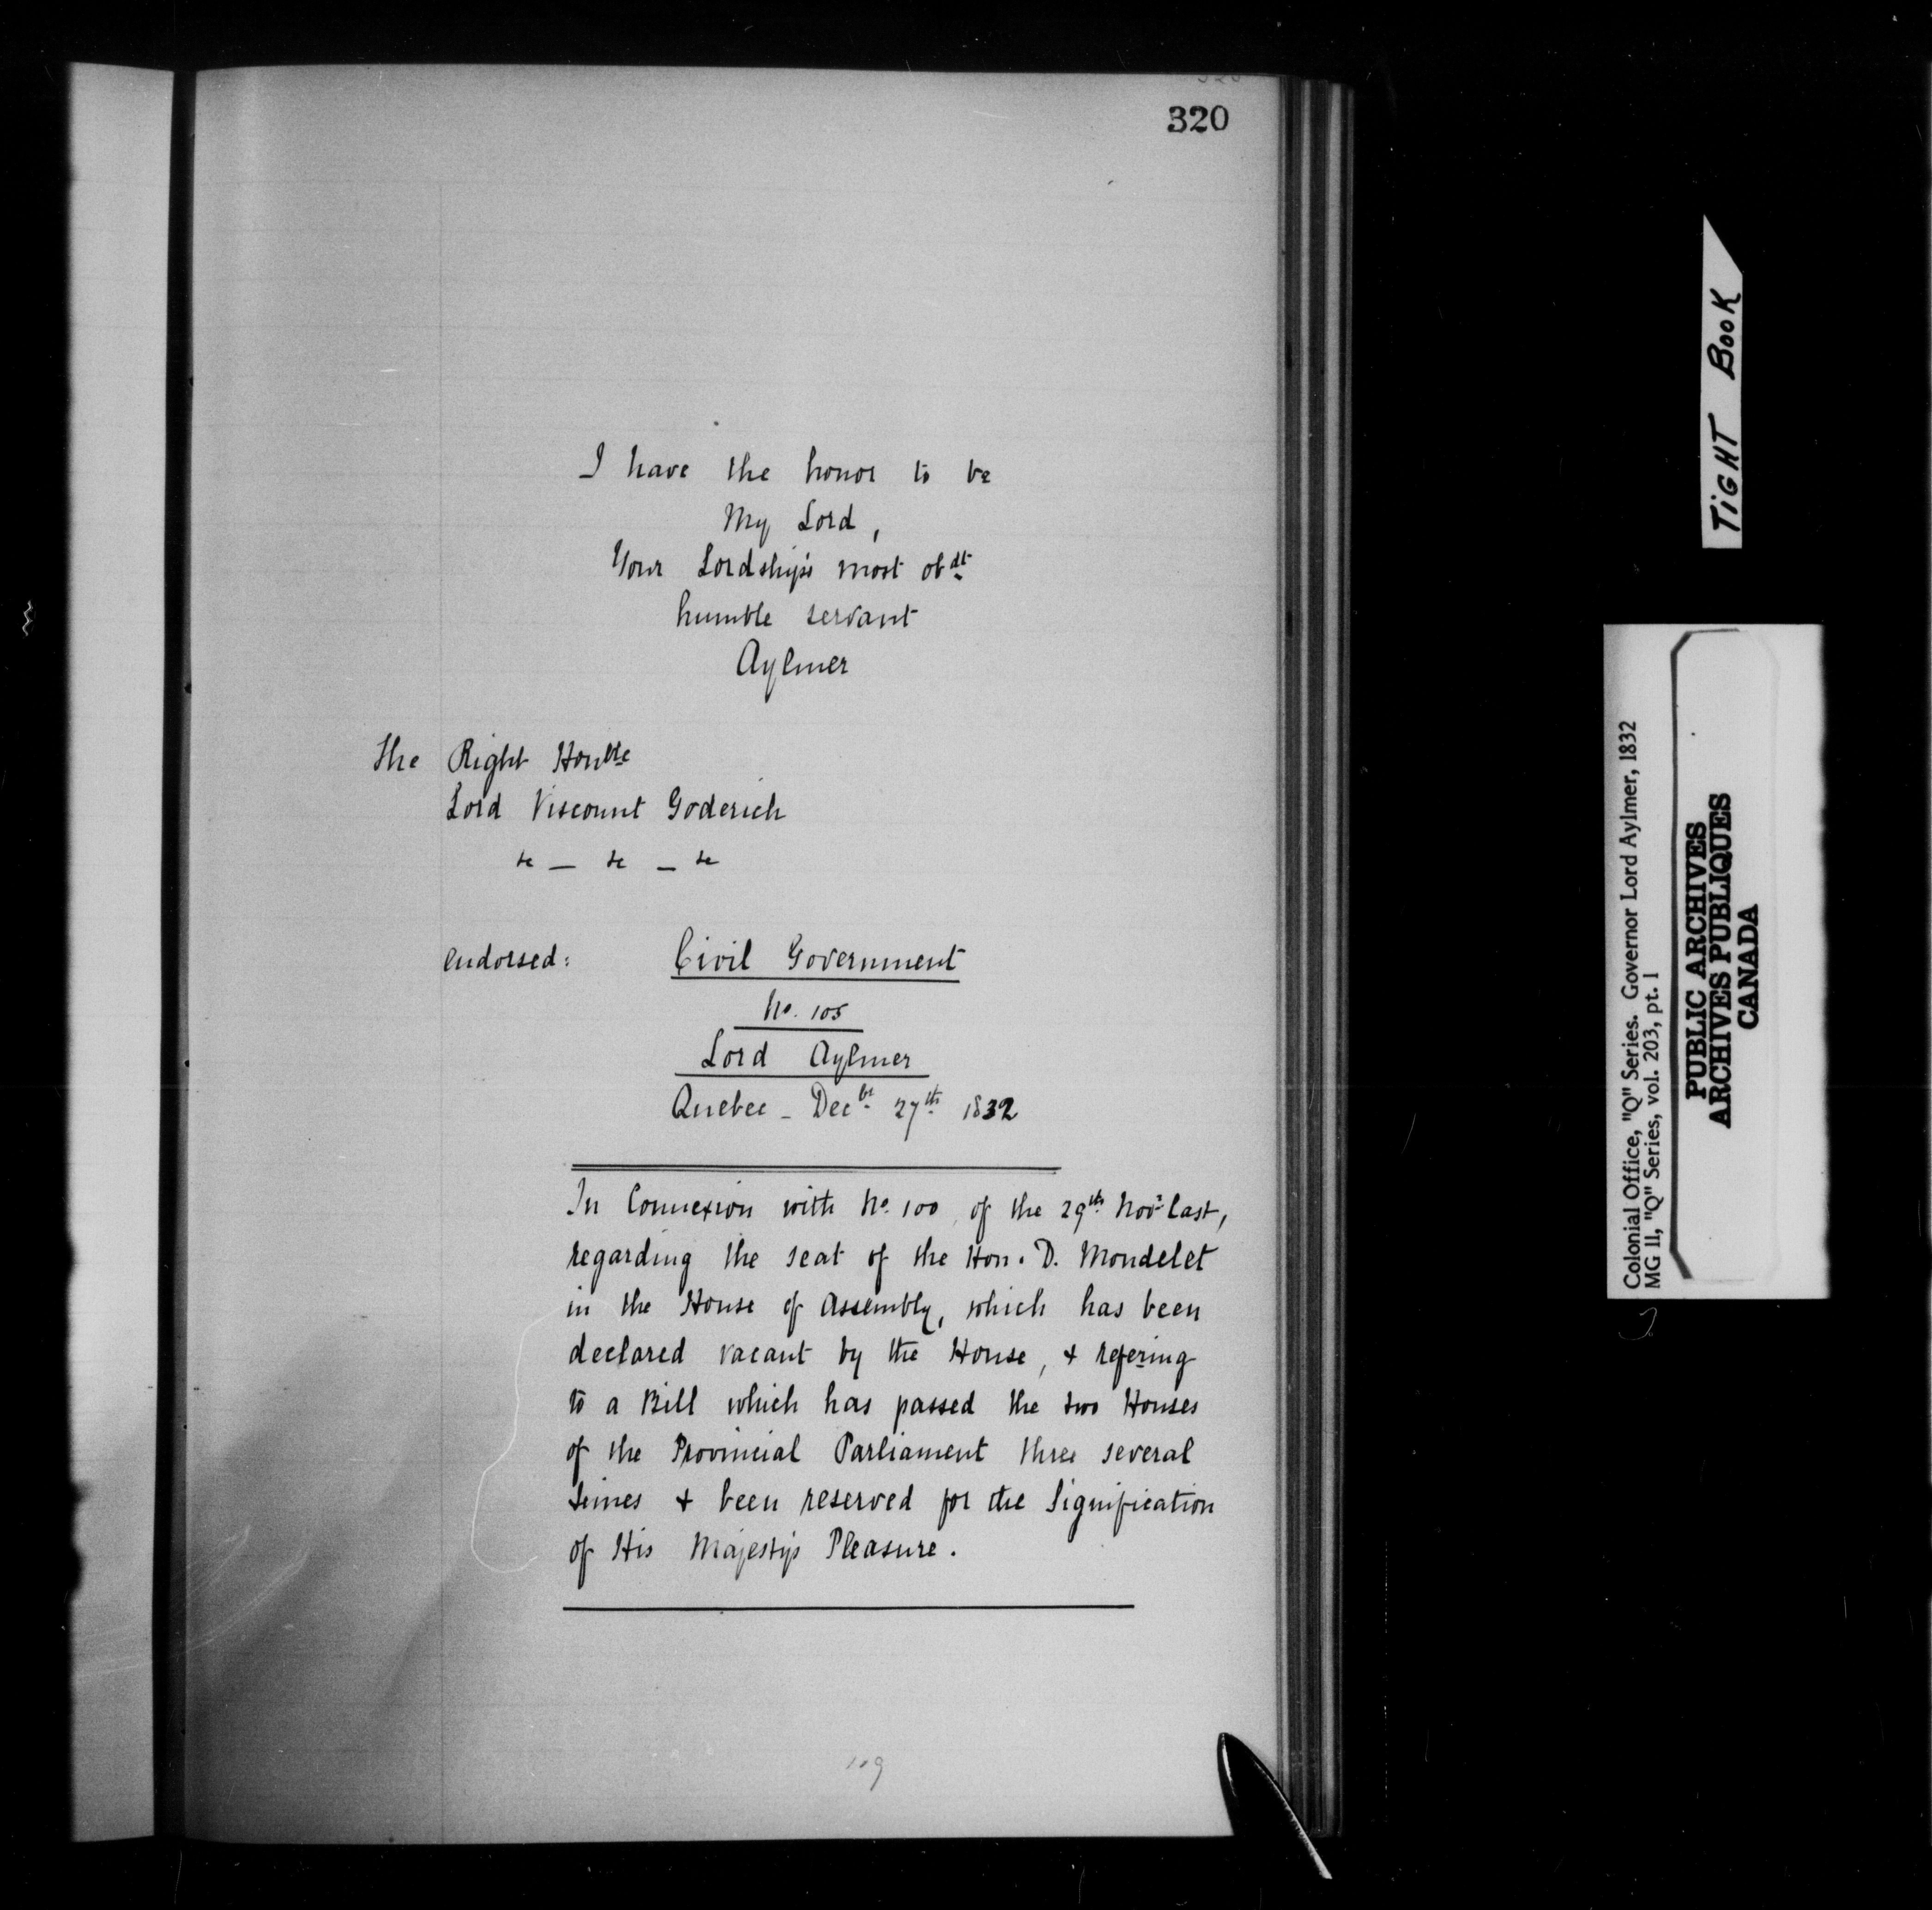 320
I have the honor to be
My Lord,
Your Lordship's most obdt
humble servant
Aylmer
The Right Honble
Lord Viscount Goderich
&c — &c — &c
endorsed: Civil Government
No. 105
Lord Aylmer
Quebec - Decbr 27th 1832
In Connexion with No. 100, of the 29th Novr last,
regarding the seat of the Hon. D. Mondelet
in the House of Assembly, which has been
declared vacant by the House, & refering
to a Bill which has passed the two Houses
of the Provincial Parliament three several
times & been reserved for the Signification
of His Majesty's Pleasure.
109
TIGHT BOOK
Colonial Office, "Q" Series. Governor Lord Aylmer, 1832
MG 11, "Q" Series, vol. 203, pt. 1
PUBLIC ARCHIVES
ARCHIVES PUBLIQUES
CANADA